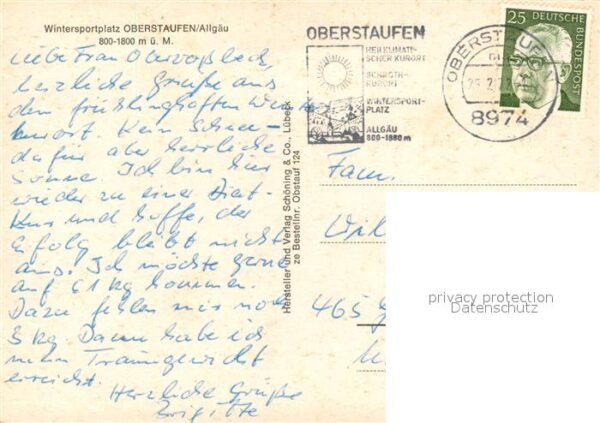 Wintersportplatz OBERSTAUFEN/Allgäu
800-1800 m ü. M.
Liebe Frau
herzliche Grüße aus
dem frühlingshaften
kurort. Kein Schnee -
dafür aber herrliche
Sonne. Ich bin hier
wieder zu einer Diät-
Kur und hoffe, der
Erfolg bleibt nicht
aus. Ich möchte gerne
auf 61 kg kommen.
Dazu fehlen mir noch
3 kg. Dann habe ich
mein Traumgewicht
erreicht.
Herzliche Grüße
Brigitte
Hersteller und Verlag Schöning & Co., Lübeck
ze Bestellnr. Obstauf 124
OBERSTAUFEN
HEILKLIMATI-
SCHER KURORT
SCHROTH-
KURORT
WINTERSPORT-
PLATZ
ALLGÄU
800-1800 m
OBERSTAUFEN
8974
25 DEUTSCHE
BUNDESPOST
Fam.
465
privacy protection
Datenschutz